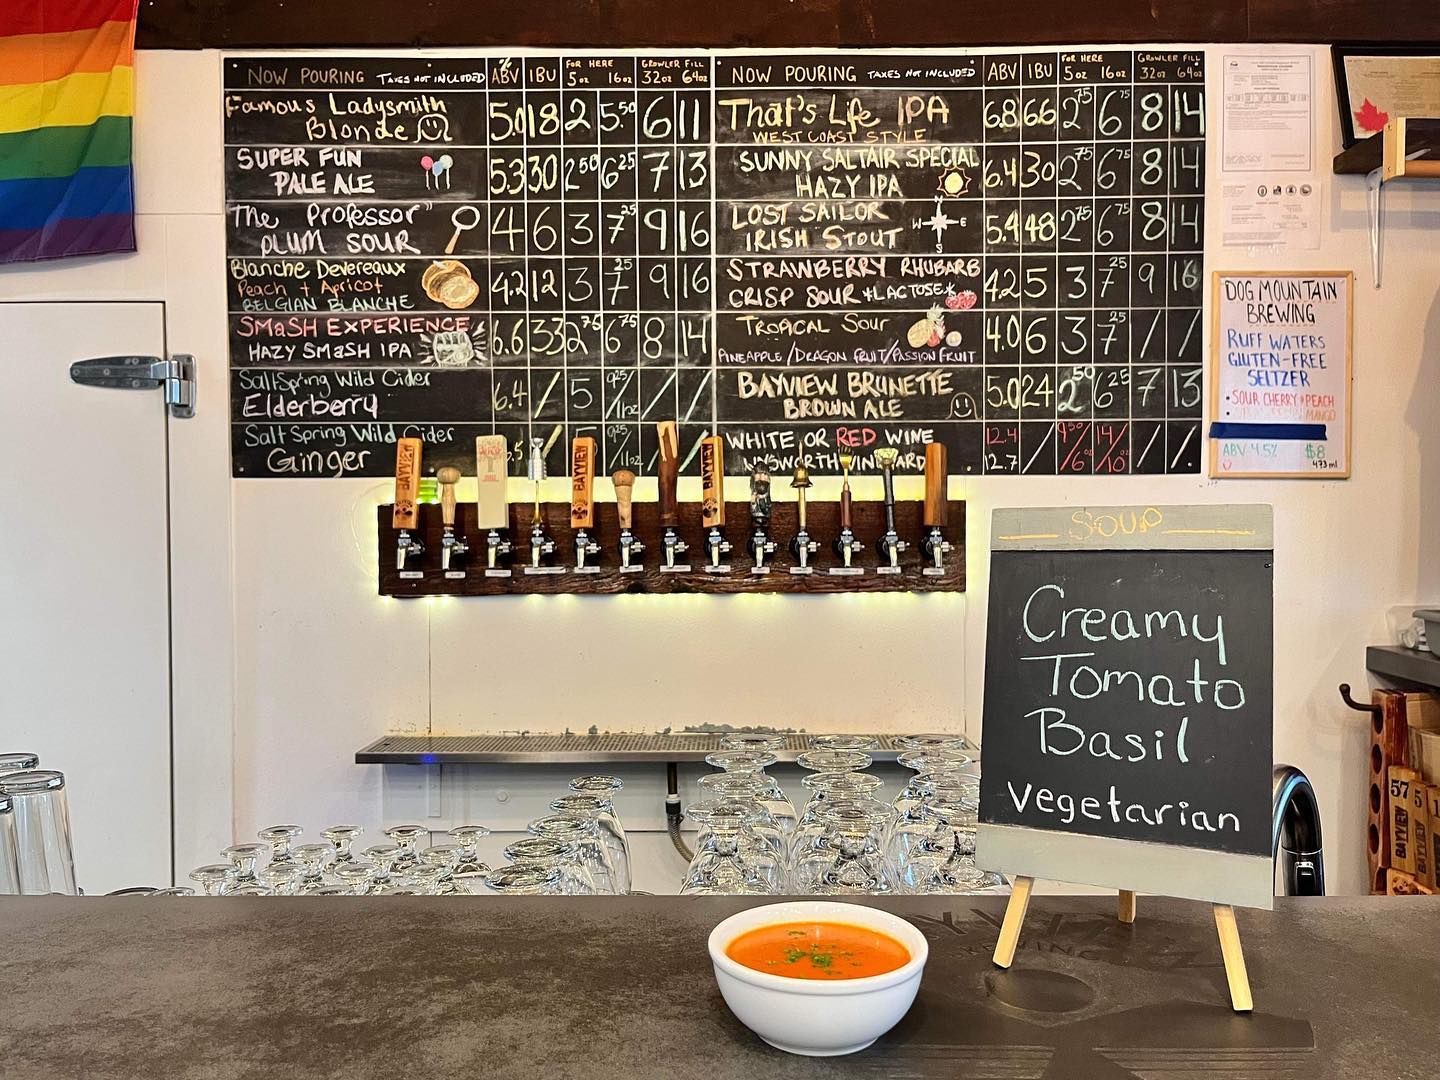 NOW POURING TAXES NOT INCLUDED ABV IBU FOR HERE 5oz 16oz GROWLER FILL 32oz 64oz
Famous Ladysmith
Blonde 5.0 18 2 5.50 6 11
SUPER FUN
PALE ALE 5.3 30 2.50 6.25 7 13
The "Professor"
PLUM SOUR 4 6 3 7.25 9 16
Blanche Devereaux
Peach + Apricot
BELGIAN BLANCHE 4.2 12 3 7.25 9 16
SMaSH EXPERIENCE
HAZY SMaSH IPA 6.6 33 2.75 6.75 8 14
SaltSpring Wild Cider
Elderberry 6.4 / 5 9.25/11oz / /
Salt Spring Wild Cider
Ginger .5 5 9.25/11oz
NOW POURING TAXES NOT INCLUDED ABV IBU FOR HERE 5oz 16oz GROWLER FILL 32oz 64oz
That's Life IPA
WEST COAST STYLE 6.8 66 2.75 6.75 8 14
SUNNY SALTAIR SPECIAL
HAZY IPA 6.4 30 2.75 6.75 8 14
LOST SAILOR
IRISH STOUT N W E S 5.4 48 2.75 6.75 8 14
STRAWBERRY RHUBARB
CRISP SOUR *LACTOSE* 4.2 5 3 7.25 9 16
TROPICAL SOUR
PINEAPPLE/DRAGON FRUIT/PASSION FRUIT 4.0 6 3 7.25 / /
BAYVIEW BRUNETTE
BROWN ALE 5.0 24 2.50 6.25 7 13
WHITE OR RED WINE 12.4 / 9.50/6oz 14/10oz / /
12.7
DOG MOUNTAIN
BREWING
RUFF WATERS
GLUTEN-FREE
SELTZER
• SOUR CHERRY + PEACH
MANGO
ABV 4.5% $8
473ml
BAYVIEW
BAYVIEW
BAYVIEW
SOUP
Creamy
Tomato
Basil
vegetarian
57
5
BAYVIEW
BAYVIEW